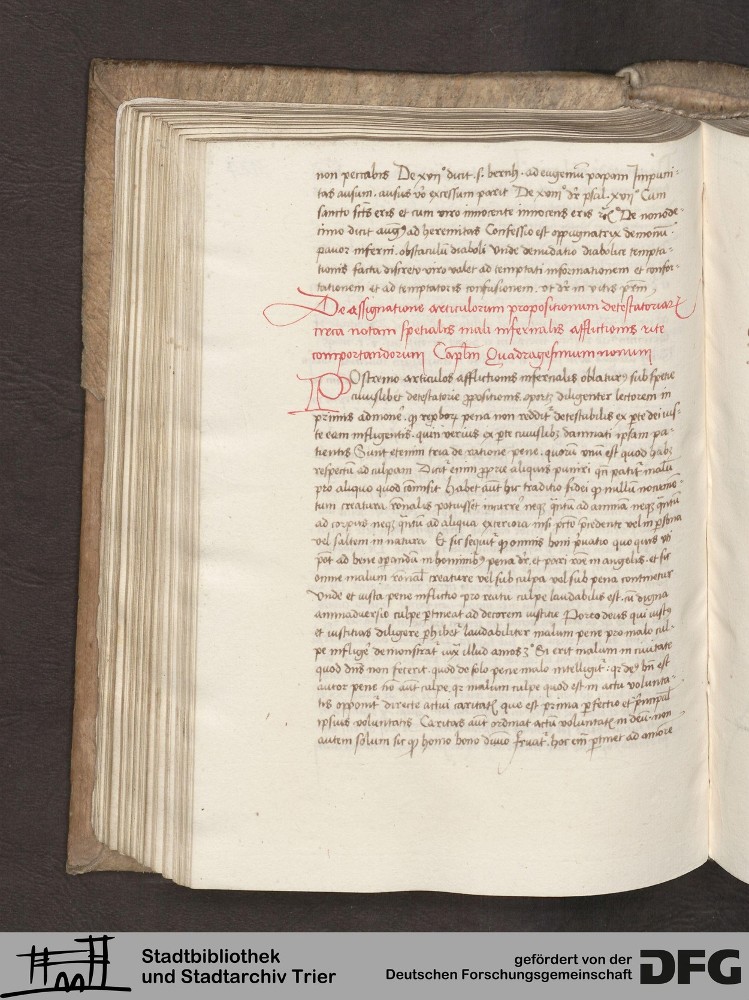 non peccabis De xvii° dicit s. bernh. ad eugeniū papam Impuni-
tas ausum. ausus vo excessum parit De xviii° dr psal. xvii° Cum
sancto scts eris et cum viro innocente innocens eris De nonode-
cimo dicit aug9 ad heremitas Confessio est oppugnatrix demonū
pavor inferni. obstaculū diaboli Unde denudatio diabolice tempta-
tionis facta discreto viro valet ad temptati informationem et confor-
tationem et ad temptatoris confusionem. ut dr in vitis prm
De assignatione articulorum propositionum detestatoriarꝝ
circa notam spetialis mali infernalis afflictionis rite
comportandorum Caplm Quadragesimum nonum
Postremo articulos afflictionis infernalis oblaturus sub specie
cuiuslibet detestatorie ppositionis. oportꝫ diligenter lectorem in
primis admone'. qꝫ pena non reddit' detestabilis ex pte dei ius-
te eam infligentis. quin verius ex pte cuiuslibꝫ damnati ipsam pa-
tientis Sunt etenim tria de ratione pene. quorū unū est quod habꝫ
respectū ad culpam Dicit' enim pprie aliquis puniri qn patit' malū
pro aliquo quod cōmisit habet aūt hic traditio fidei qꝫ nullū nocumē-
tum creatura rōnalis potuisset incurre' neqꝫ qntū ad animā neqꝫ qntū
ad corpus neqꝫ qntū ad aliqua exteriora nisi pctō precedente vel in psona
vel saltem in natura Et sic sequit' qꝫ omnis boni privatio quo quis uti
pot ad bene opandū in hominibꝫ pena dr. et pari rōne in angelis. et sic
omne malum rōnal creature vel sub culpa vel sub pena continetur
Unde et iusta pene inflictio pro reatu culpe laudabilis est. cū digna
animadversio culpe ptineat ad decorem iustitie Porro deus qui iust9
et iustitias diligere phibet' laudabiliter malum pene pro malo cul-
pe inflige' demonstrat' iux illud amos 3° Si erit malum in civitate
quod dns non fecerit. quod de solo pene malo intelligit'. qr de9 bn est
autor pene nō aūt culpe. qr malum culpe quod est in actu volunta-
tis opponit' directe actui caritatis que est prima pfectio et principal
ipsius voluntatis Caritas aūt ordinat actū voluntatis in deū. non
autem solum sic qꝫ homo bono divino fruat'. hoc em ptinet ad amore
Stadtbibliothek
und Stadtarchiv Trier
gefördert von der
Deutschen Forschungsgemeinschaft
DFG